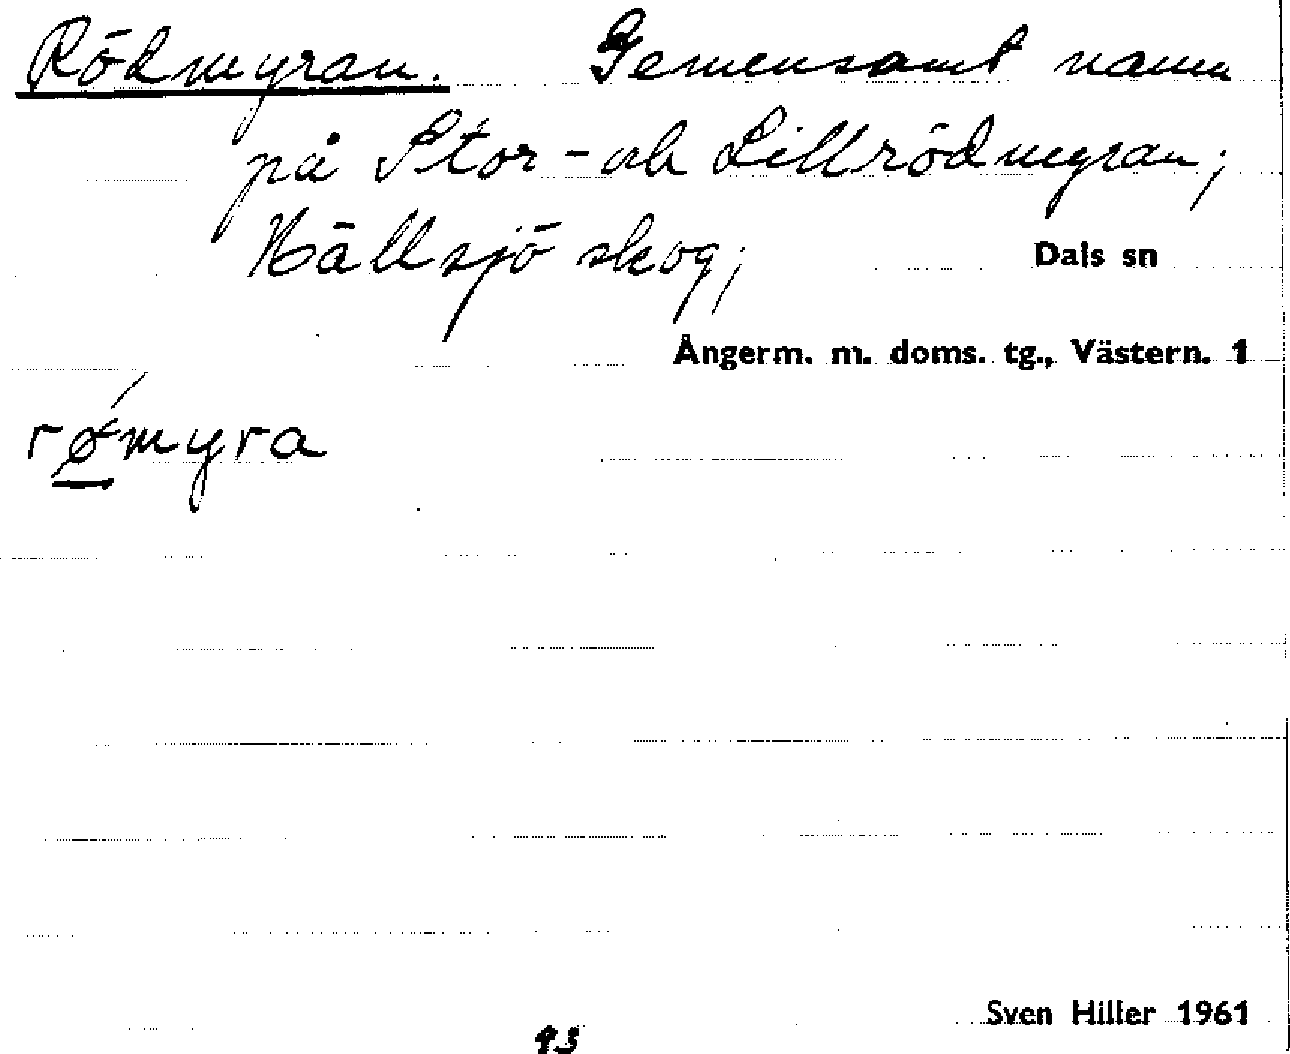 Rödmyran. Gemensamt namn
på Stor- och Lillrödmyran;
Hällsjö skog; Dals sn
Ångerm. m. doms. tg., Västern. 1
rømyra
Sven Hiller 1961
93